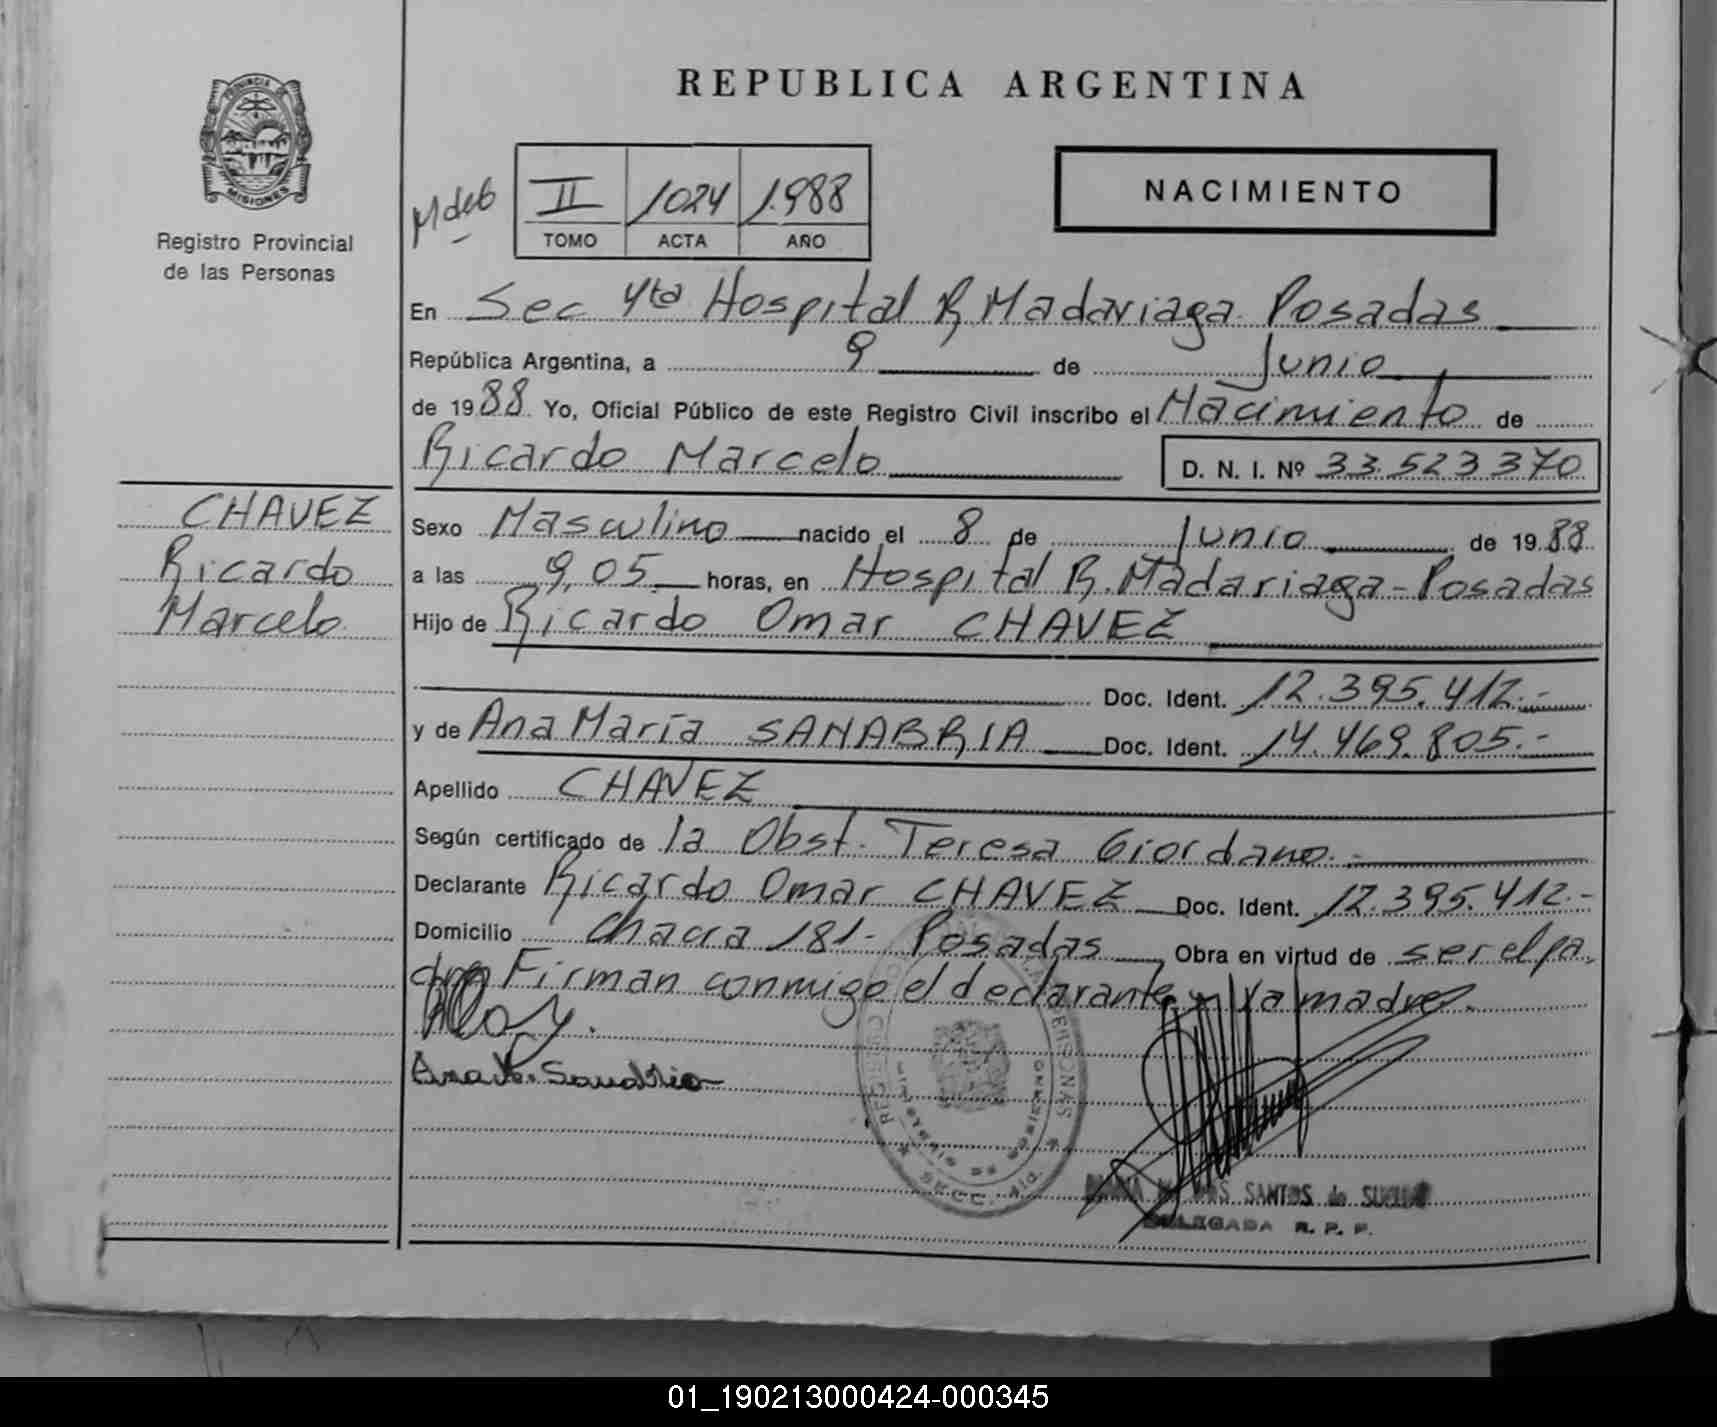 REPUBLICA ARGENTINA
PROVINCIA DE
MISIONES
Registro Provincial
de las Personas
II 1024 1.988
TOMO ACTA AÑO
NACIMIENTO
En Sec 4ta Hospital R Madariaga Posadas
República Argentina, a 9 de Junio
de 1988 Yo, Oficial Público de este Registro Civil inscribo el Nacimiento de
Ricardo Marcelo D. N. I. Nº 33.523.370
CHAVEZ
Ricardo
Marcelo
Sexo Masculino nacido el 8 de Junio de 1988
a las 9,05 horas, en Hospital R. Madariaga - Posadas
Hijo de Ricardo Omar CHAVEZ
Doc. Ident. 12.395.412.-
y de Ana María SANABRIA Doc. Ident. 14.469.805.-
Apellido CHAVEZ
Según certificado de la Obst. Teresa Giordano.-
Declarante Ricardo Omar CHAVEZ Doc. Ident. 12.395.412.-
Domicilio Chacra 181- Posadas Obra en virtud de ser el pa,
dre Firman conmigo el declarante y la madre.
Ana M. Sanabria
SANTOS de
DELEGADA R. P. P.
01_190213000424-000345